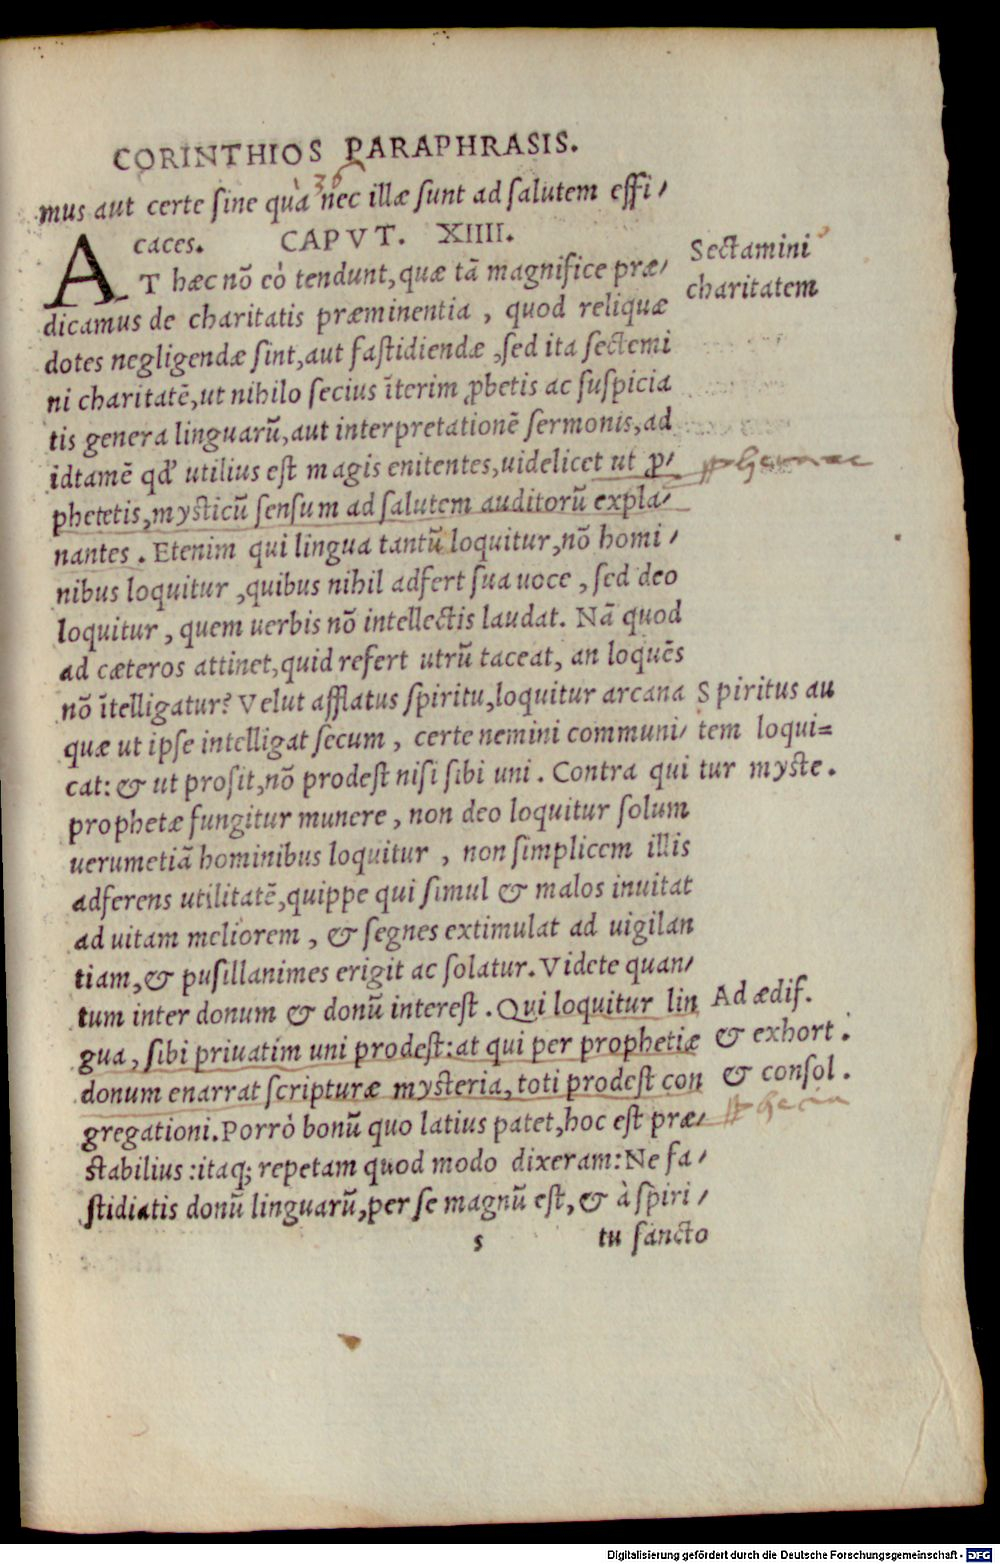 CORINTHIOS PARAPHRASIS.
mus aut certe sine quà nec illæ sunt ad salutem effi/
caces. CAPVT. XIIII.
AT hæc nõ eò tendunt, quæ tã magnifice præ/
dicamus de charitatis præminentia, quod reliquæ
dotes negligendæ sint, aut fastidiendæ, sed ita sectemi
ni charitatẽ, ut nihilo secius ĩterim ꝓbetis ac suspicia
tis genera linguarũ, aut interpretationẽ sermonis, ad
idtamẽ qd' utilius est magis enitentes, uidelicet ut ꝓ/
phetetis, mysticũ sensum ad salutem auditorũ expla/
nantes. Etenim qui lingua tantũ loquitur, nõ homi/
nibus loquitur, quibus nihil adfert sua uoce, sed deo
loquitur, quem uerbis nõ intellectis laudat. Nã quod
ad cæteros attinet, quid refert utrũ taceat, an loquẽs
nõ ĩtelligatur? Velut afflatus spiritu, loquitur arcana
quæ ut ipse intelligat secum, certe nemini communi/
cat: & ut prosit, nõ prodest nisi sibi uni. Contra qui
prophetæ fungitur munere, non deo loquitur solum
uerumetiã hominibus loquitur, non simplicem illis
adferens utilitatẽ, quippe qui simul & malos inuitat
ad uitam meliorem, & segnes extimulat ad uigilan
tiam, & pusillanimes erigit ac solatur. Videte quan/
tum inter donum & donũ interest. Qui loquitur lin
gua, sibi priuatim uni prodest: at qui per prophetiæ
donum enarrat scripturæ mysteria, toti prodest con
gregationi. Porrò bonũ quo latius patet, hoc est præ/
stabilius: itaq; repetam quod modo dixeram: Ne fa/
stidiatis donũ linguarũ, per se magnũ est, & à spiri/
s tu sancto
Sectamini
charitatem
Spiritus au
tem loqui=
tur myste.
Ad ædif.
& exhort.
& consol.
Digitalisierung gefördert durch die Deutsche Forschungsgemeinschaft - DFG